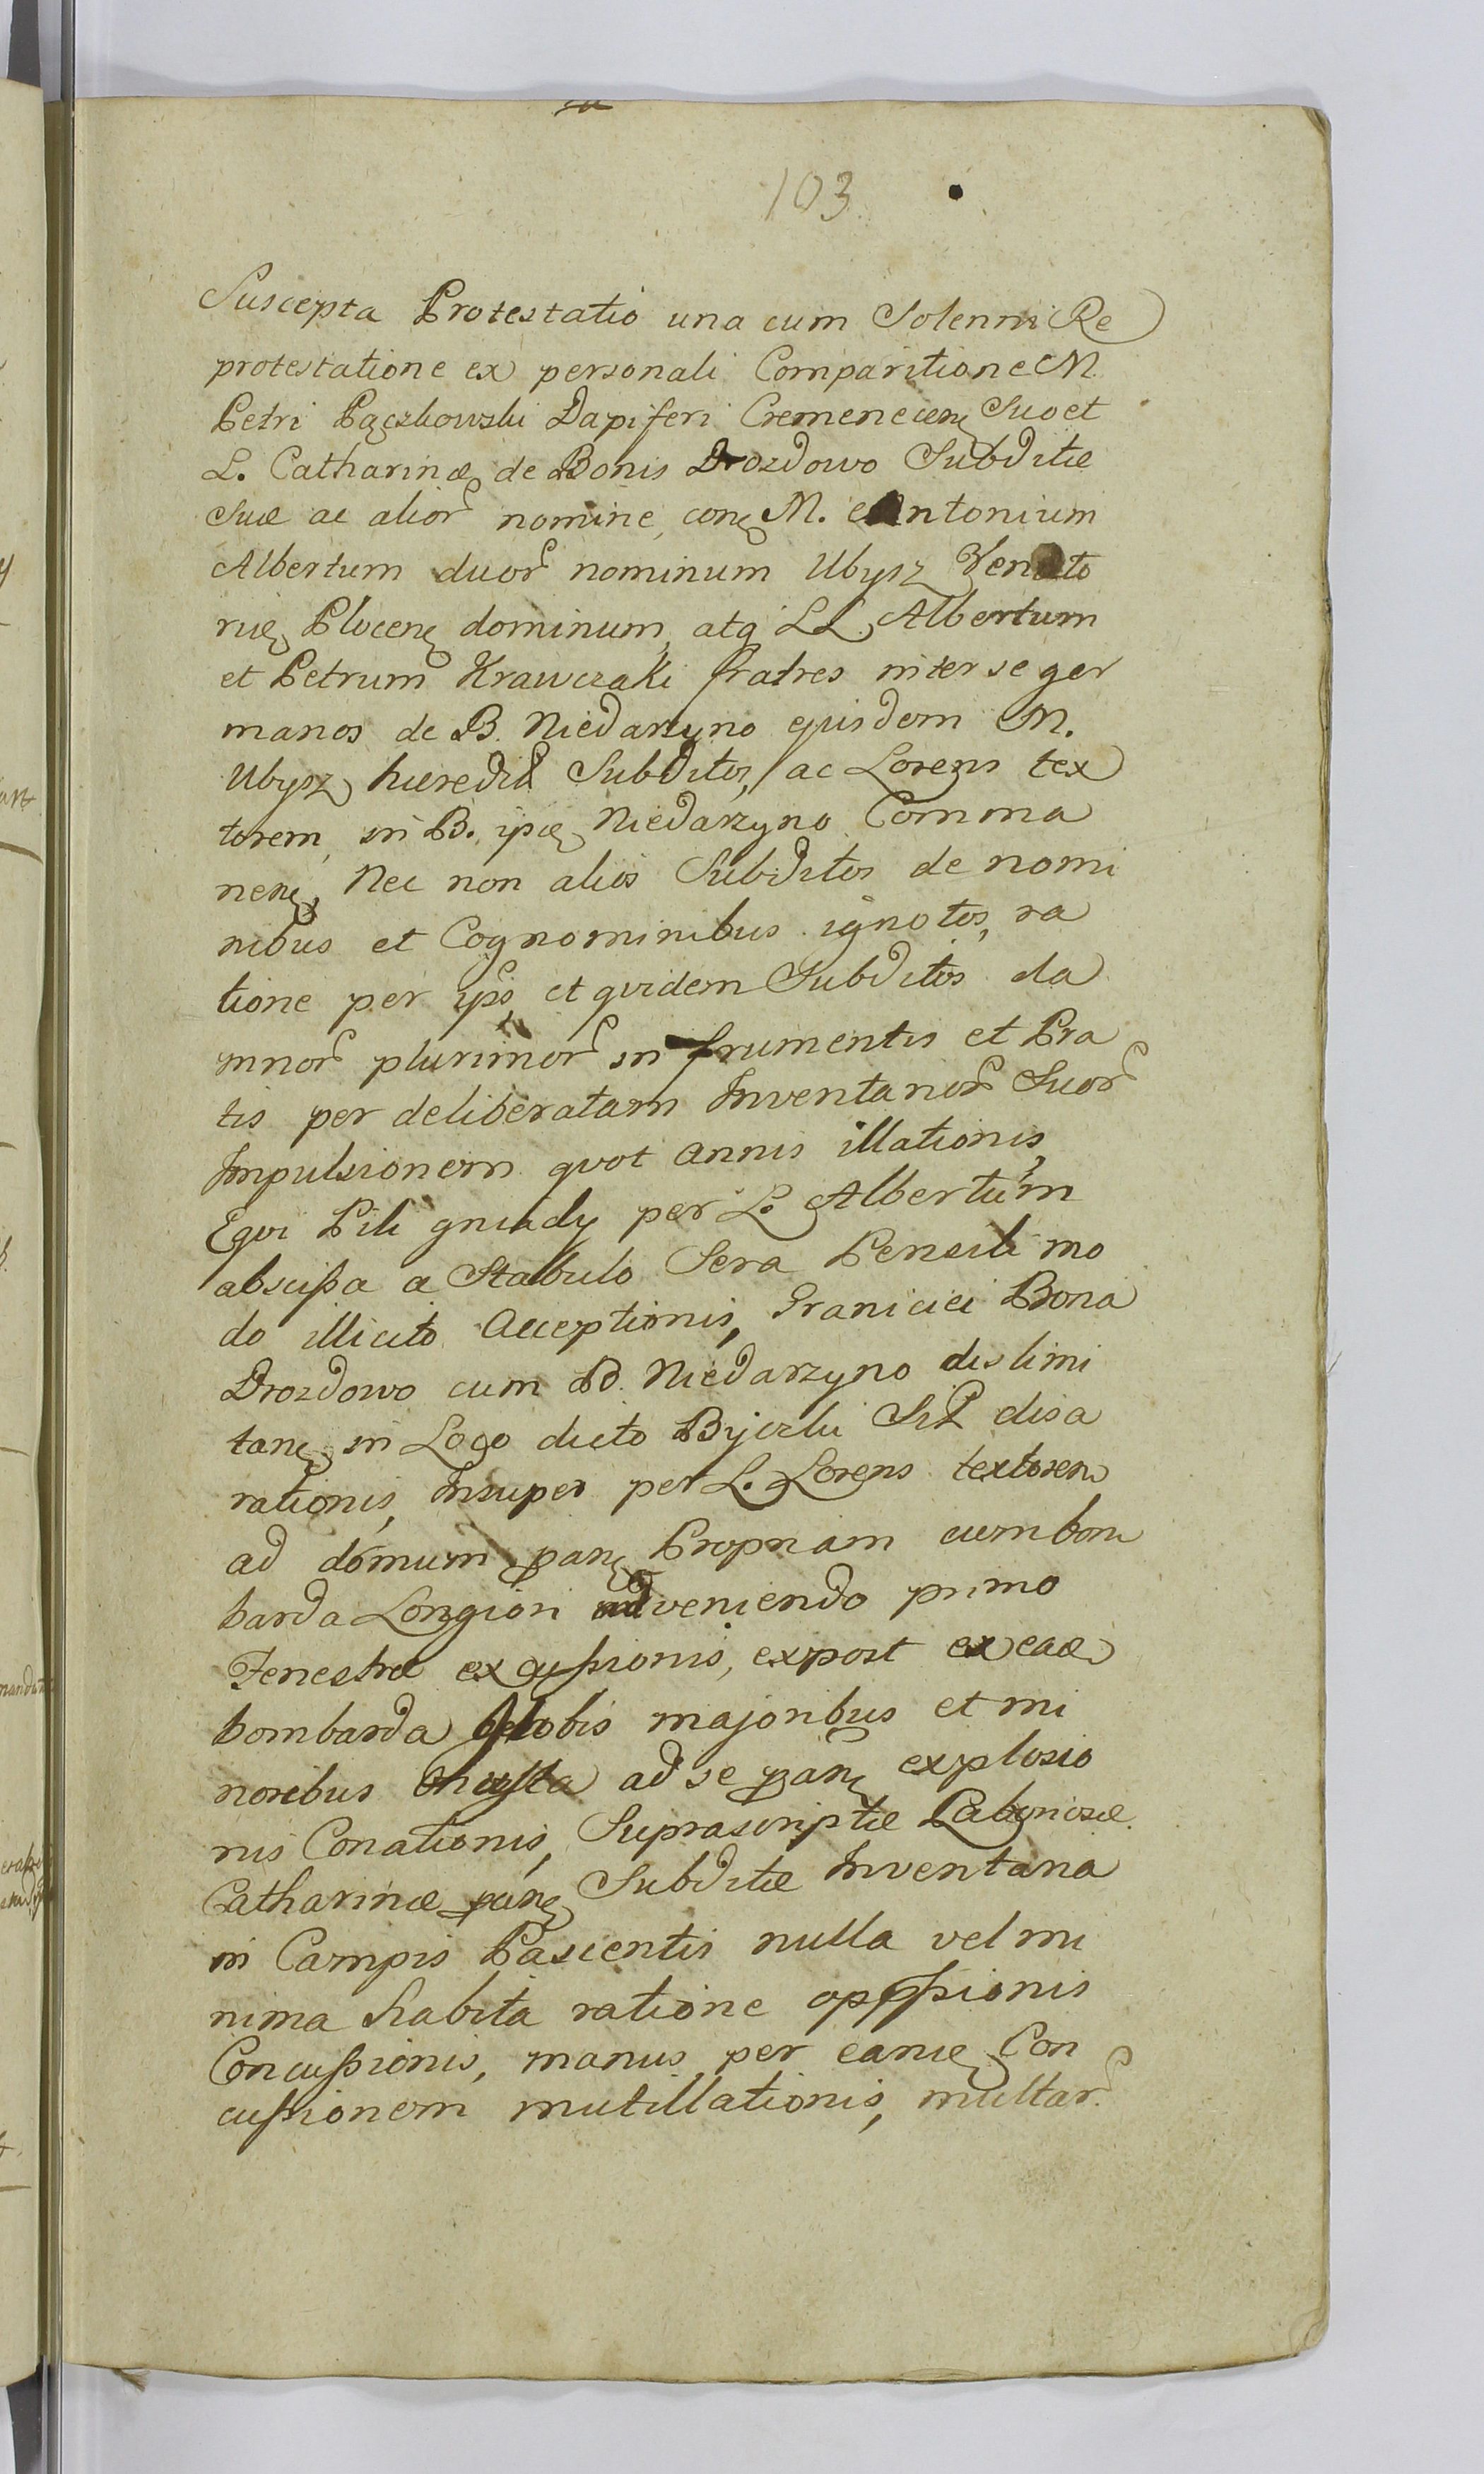 103
Suscepta Protestatio una cum Solenni Re
protestatione ex personali Comparitione M
Petri Pączkowski Dapiferi Cremenecen Suo et
L. Catharinæ de Bonis Drozdowo Subditæ
Suæ ac alior nomine, con M. Antonium
Albertum duor nominum Ubysz Venato
riæ Plocen dominum, atq LL. Albertum
et Petrum Krawczaki fratres inter se ger
manos de B. Niedarzyno ejusdem M.
Ubysz hæredis Subditos, ac Lorens tex
torem, in B. ipæ Niedarzyno Comma
nen, Nec non alios Subditos de nomi
nibus et Cognominibus ignotos, ra
tione per ips et quidem Subditos da
mnor plurimor in frumentis et Pra
tis per deliberatam Inventarior Suor
Impulsionem quot annis illationis,
Equi Pili gniady per L. Albertum
abscissa a Stabulo Sera Pensili mo
do illicito acceptionis, Graniciei Bona
Drozdowo cum B. Niedarzyno dislimi
tan in Loco dicto Byczki disa
rationis, Insuper per L. Lorens textorem
ad domum pan Propriam cum bom
barda Longiori adveniendo primo
Fenestræ excussionis, expost ex ead
bombarda globis majoribus et mi
noribus onusta ad se pan explosio
nis Conationis, Suprascriptæ Laboriosæ
Catharinæ pan Subditæ Inventaria
in Campis Pascentis nulla vel mi
nima habita ratione oppssionis
Concussionis, manus per eand Con
cussionem mutillationis, multar